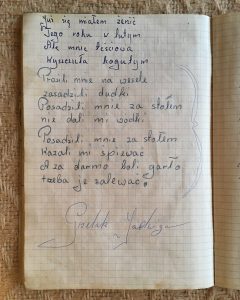 Już się miałem żenić
Tego roku w lutym
Ale mnie teściowa
Wyuczuła kogutym
Prosili mnie na wesele
zasadzili dudki
Posadzili mnie za stołem
nie dali mi wódki
Posadzili mnie za stołem
Kazali mi śpiewać
A za darmo boli garło
trzeba je zalewać.